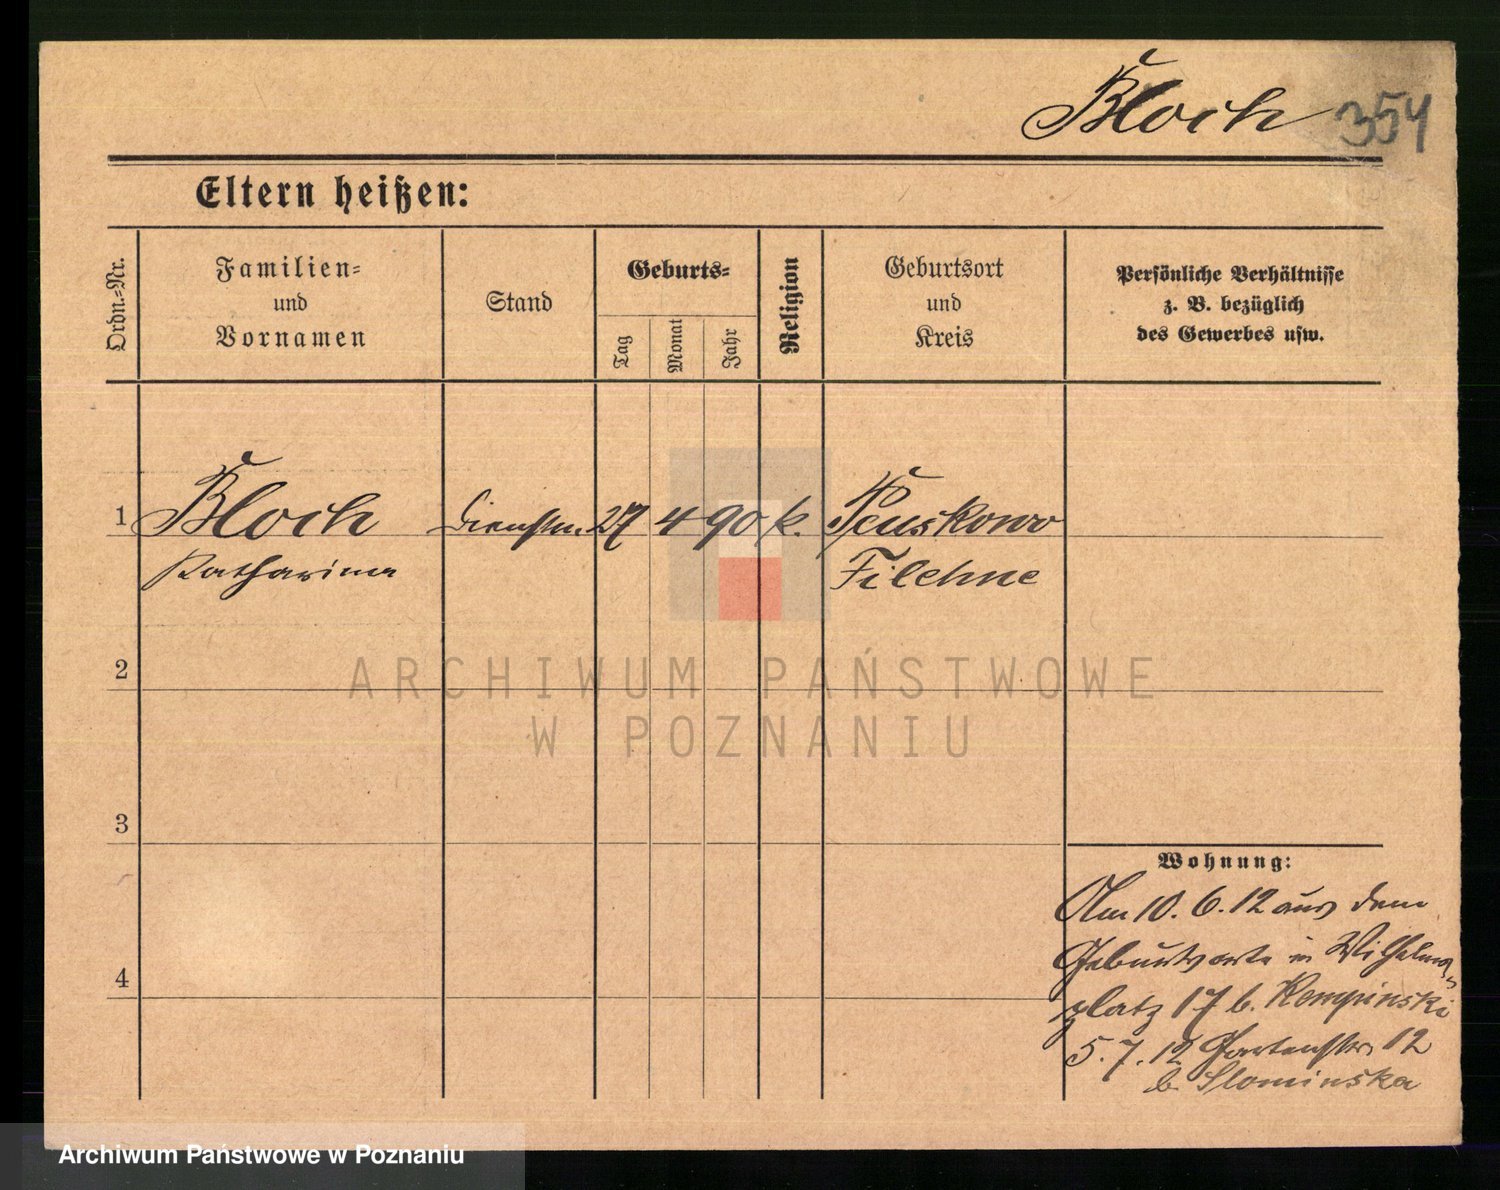 Bloch 354
Eltern heißen:
Ordn.-Nr.
Familien-
und
Vornamen
Stand
Geburts-
Tag
Monat
Jahr
Religion
Geburtsort
und
Kreis
Persönliche Verhältnisse
z. B. bezüglich
des Gewerbes usw.
1 Bloch Dienstm. 27 4 90 k. Peuskowo
Katharina Filehne
2
3
4
Wohnung:
Am 10. 6. 12 aus dem
Geburtsorte in Wilhelms-
platz 17 b. Kempinski
5. 7. 12 Gartenstr. 12
b. Slominska
ARCHIWUM PAŃSTWOWE
W POZNANIU
Archiwum Państwowe w Poznaniu